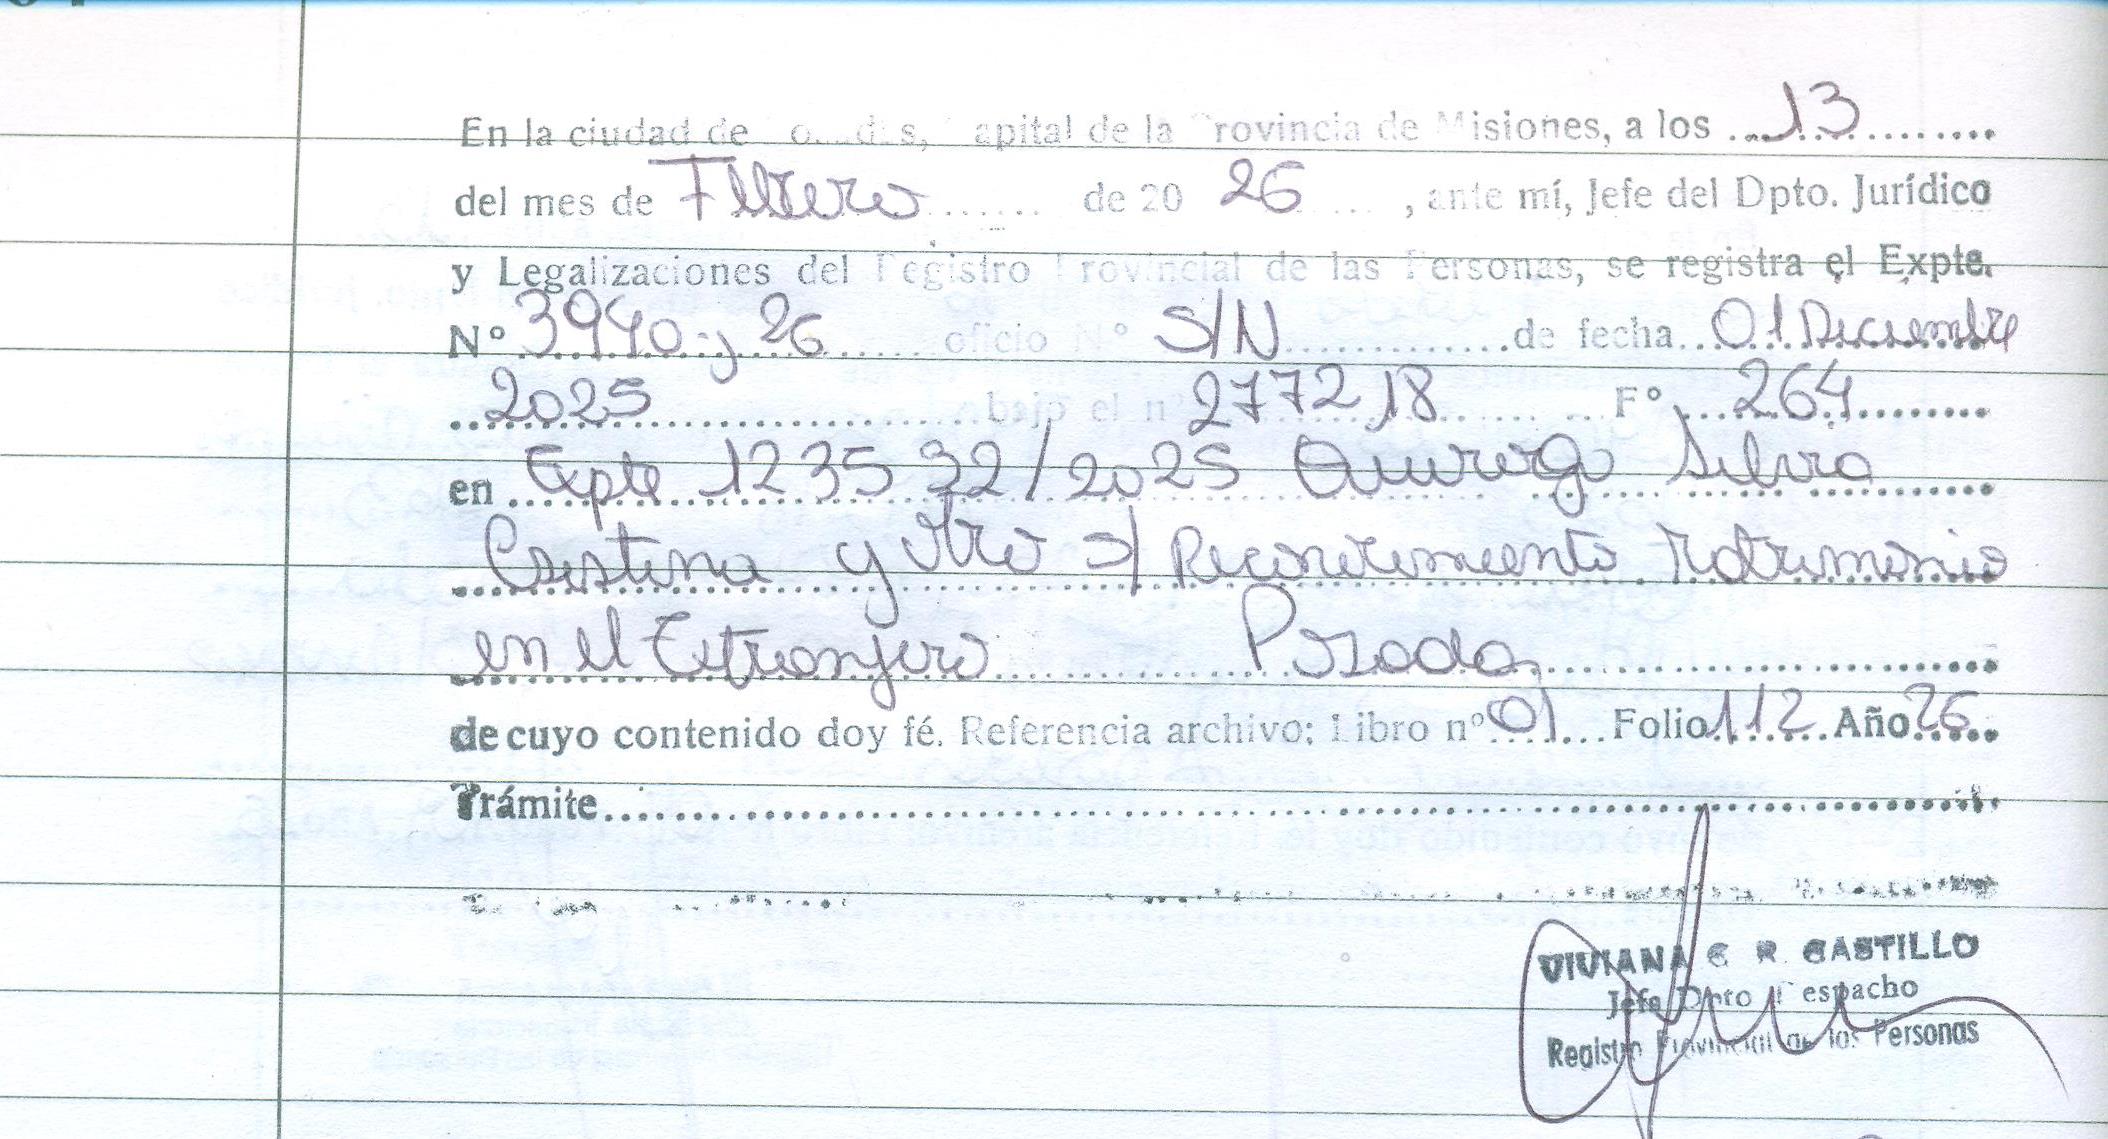 En la ciudad de o...d.s, apital de la rovincia de Misiones, a los 13
del mes de Febrero de 20 26, ante mí, Jefe del Dpto. Jurídico
y Legalizaciones del Registro Provincial de las Personas, se registra el Expte.
N° 3940-y 26 oficio N° S/N de fecha 01 Diciembre
2025 bajo el n° 277218 F° 264
en Expte 123532/2025 Quiroga Silvia
Cristina y otro s/ Reconocimiento Matrimonio
en el Extranjero Posadas
de cuyo contenido doy fé. Referencia archivo: Libro n° 01 Folio 112 Año 26
Trámite
VIVIANA C R CASTILLO
Jefe Dpto Despacho
Registro Provincial de los Personas